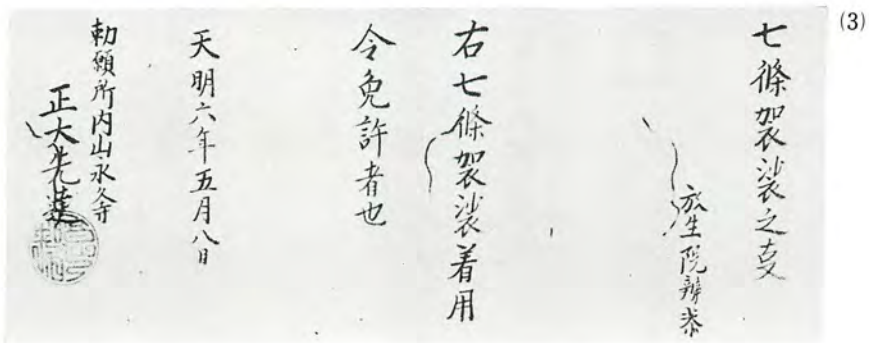 (3)
七條袈裟之叓
放生院辨恭
右七條袈裟着用
令免許者也
天明六年五月八日
勅願所内山永久寺
正大先達